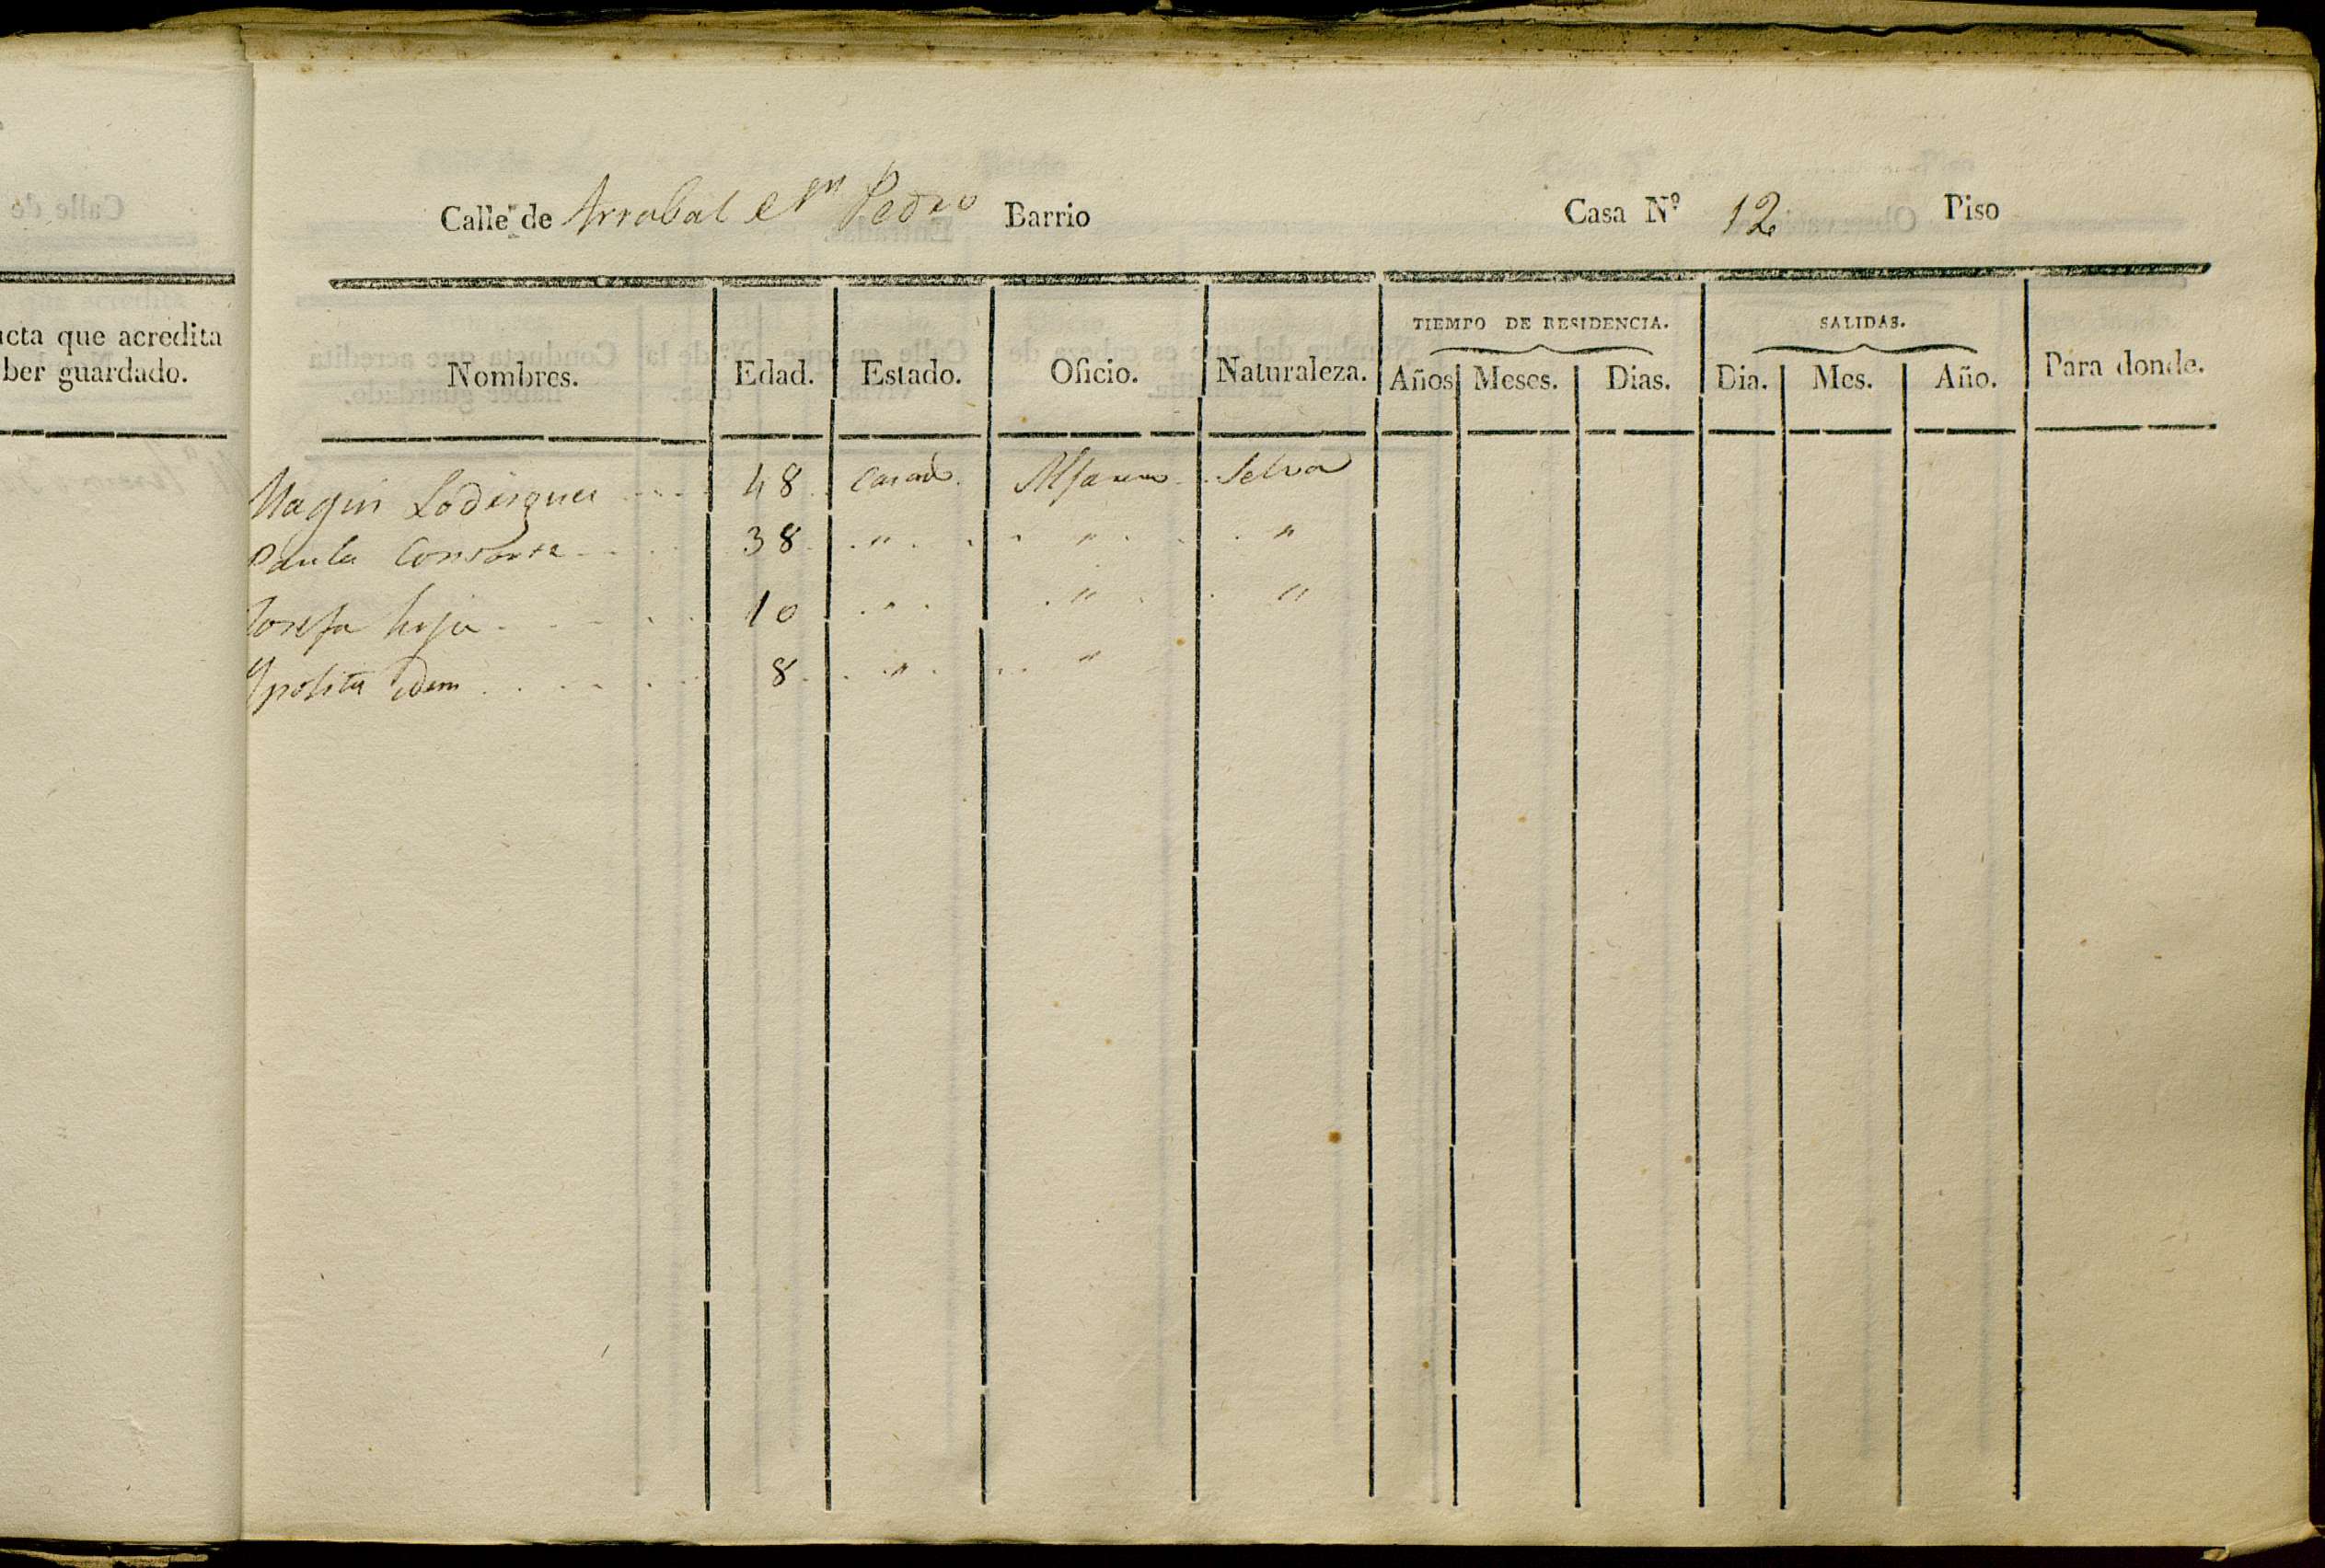 Calle de Arrabal Sn Pedro Barrio Casa Nº 12 Piso
acta que acredita
ber guardado.
TIEMPO DE RESIDENCIA. SALIDAS.
Nombres. Edad. Estado. Oficio. Naturaleza. Años Meses. Dias. Dia. Mes. Año. Para donde.
Magin 48 Casado Alfarero Selva
Paula Consorte 38 " " "
Josefa hija 10 " " "
Ypolita idem 8 " "